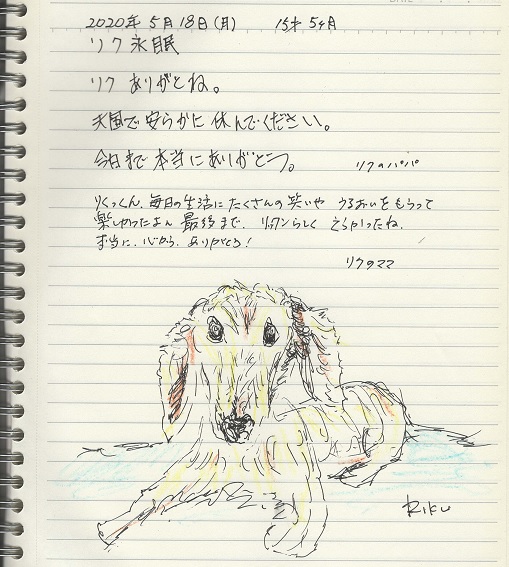 2020年 5月 18日(月) 15才 5ヶ月
リク 永眠
リク ありがとね。
天国で 安らかに 休んでください。
今日まで 本当に ありがとう。 リクのパパ
りくっくん、毎日の生活に たくさんの 笑いや うるおいを もらって
楽しかったよん 最後まで、リックンらしく えらかったね
本当に、心から、ありがとう!
リクのママ
RIKU